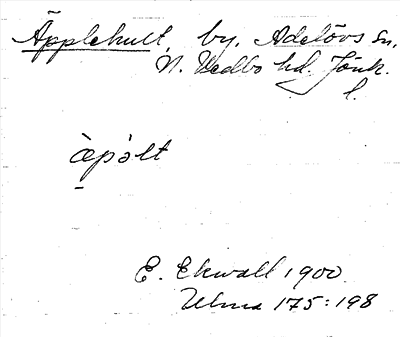 Äpplehult, by, Adelövs sn,
N. Vedbo hd. Jönk.
l.
æ̀pə̀lt
E. Ekwall 1900
Ulma 175:198